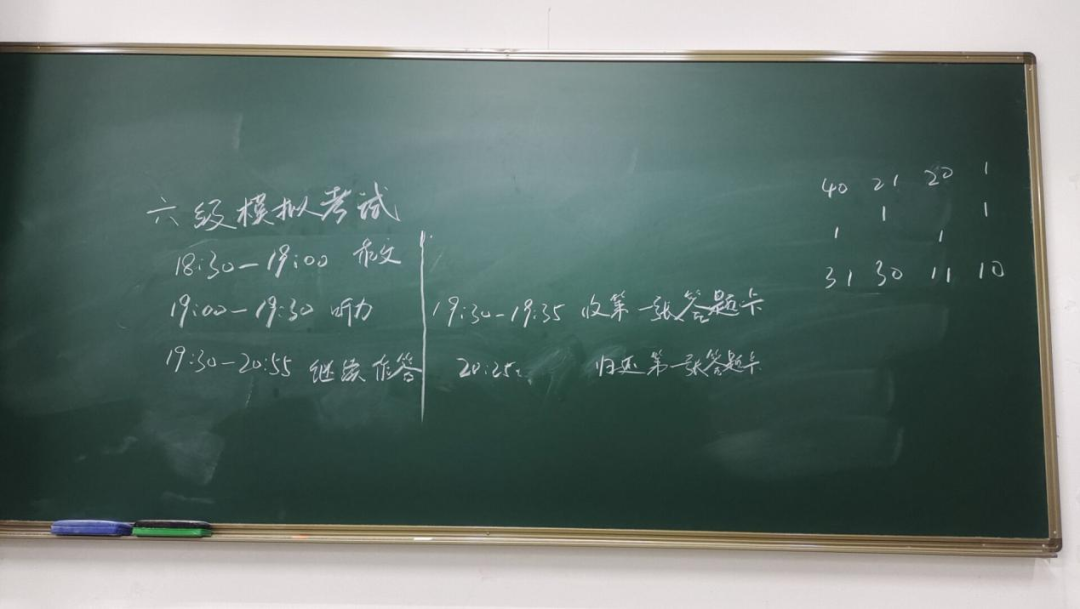 六级模拟考试
18:30—19:00 作文
19:00—19:30 听力
19:30—20:55 继续作答
19:30—19:35 收第一张答题卡
20:25 归还第一张答题卡
40 21 20 1
1 1
1 1
31 30 11 10